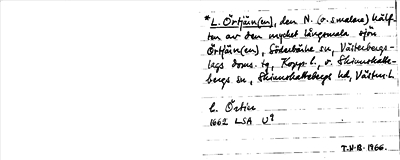 *L. Örtjärn(en), den N. (o. smalare) hälf-
ten av den mycket långsmala sjön
Örtjärn(en), Söderbärke sn, Västerbergs-
lags doms. tg, Kopp. l., o. Skinnskatte-
bergs sn, Skinnskattebergs hd, Västm. l.
L.
1662 LSA U
T.H.B. 1966.